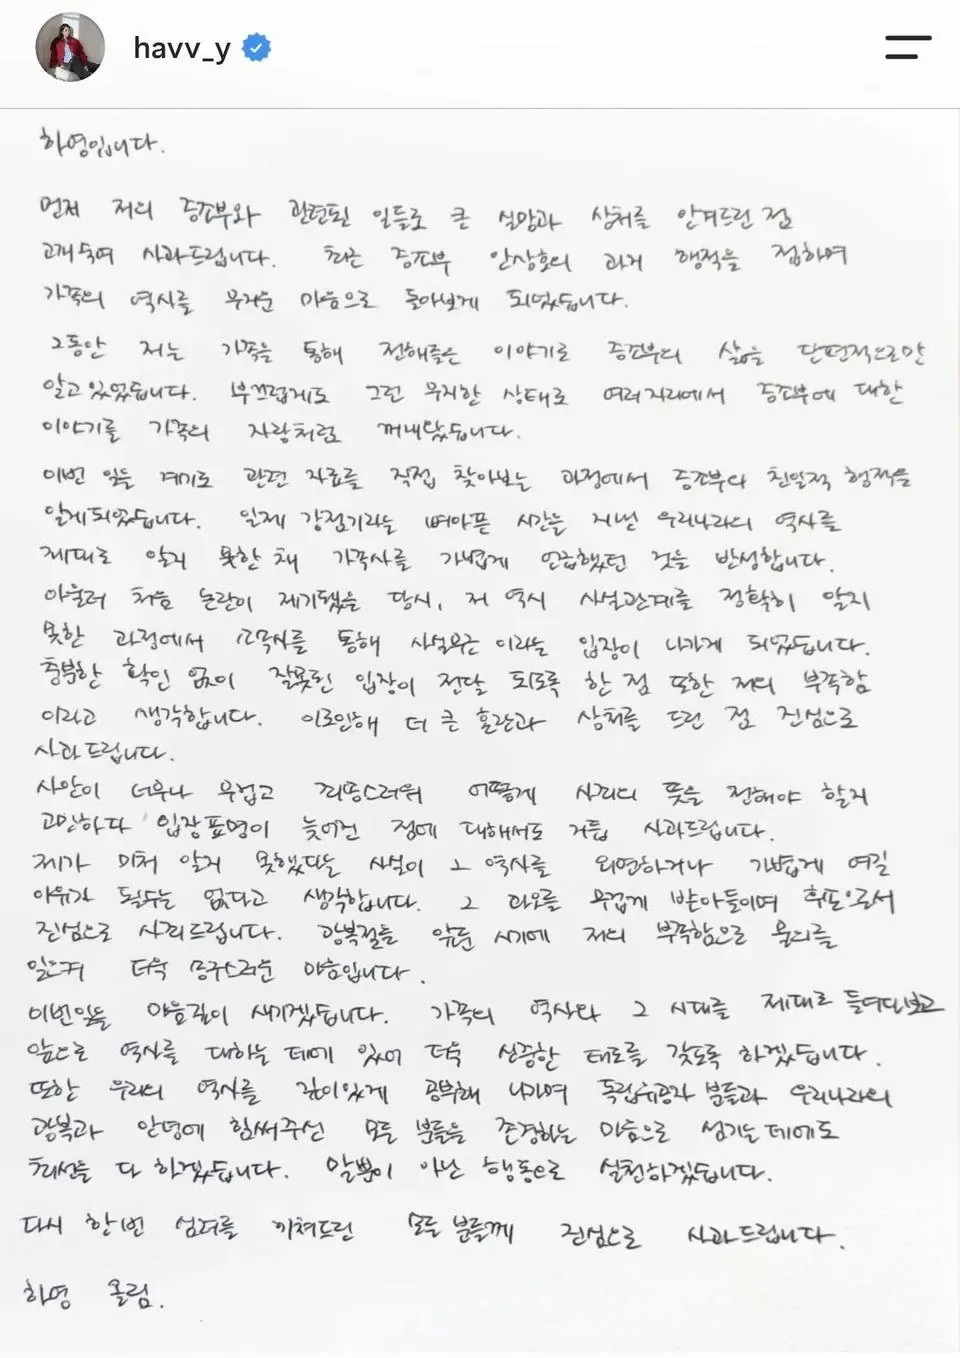 havv_y
하영입니다.
먼저 저의 증조부와 관련된 일들로 큰 실망과 상처를 안겨드린 점
고개숙여 사과드립니다. 최근 증조부 안상호의 과거 행적을 접하며
가족의 역사를 무거운 마음으로 돌아보게 되었습니다.
그동안 저는 가족을 통해 전해들은 이야기로 증조부의 삶을 단편적으로만
알고있었습니다. 부끄럽게도 그런 무지한 상태로 여러자리에서 증조부에 대한
이야기를 가족의 자랑처럼 꺼내왔습니다.
이번 일을 계기로 관련 자료를 직접 찾아보는 과정에서 증조부의 친일적 행적을
알게되었습니다. 일제 강점기라는 뼈아픈 시간을 지낸 우리나라의 역사를
제대로 알지 못한 채 가족사를 가볍게 언급했던 것을 반성합니다.
아울러 처음 논란이 제기됐을 당시, 저 역시 사실관계를 정확히 알지
못한 과정에서 소속사를 통해 사실무근 이라는 입장이 나가게 되었습니다.
충분한 확인 없이 잘못된 입장이 전달 되도록 한 점 또한 저의 부족함
이라고 생각합니다. 이로인해 더 큰 혼란과 상처를 드린 점 진심으로
사과드립니다.
사안이 너무나 무겁고 죄송스러워 어떻게 사죄의 뜻을 전해야 할지
고민하다 입장표명이 늦어진 점에 대해서도 거듭 사과드립니다.
제가 미처 알지 못했다는 사실이 그 역사를 외면하거나 가볍게 여길
이유가 될수는 없다고 생각합니다. 그 과오를 무겁게 받아들이며 후손으로서
진심으로 사죄드립니다. 광복절을 앞둔 시기에 저의 부족함으로 물의를
일으켜 더욱 송구스러운 마음입니다.
이번일을 마음깊이 새기겠습니다. 가족의 역사와 그 시대를 제대로 들여다보고
앞으로 역사를 대하는 데에 있어 더욱 신중한 태도를 갖도록 하겠습니다.
또한 우리의 역사를 깊이있게 공부해 나가며 독립유공자 분들과 우리나라의
광복과 안녕에 힘써주신 모든 분들을 존경하는 마음으로 섬기는데에도
최선을 다 하겠습니다. 말뿐이 아닌 행동으로 실천하겠습니다.
다시 한번 심려를 끼쳐드린 모든 분들께 진심으로 사과드립니다.
하영 올림.